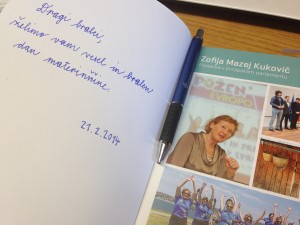 Dragi bralci,
želimo vam vesel in bralen
dan materinščine.
21.2.2014
Zofija Mazej Kukovič
EVROPO